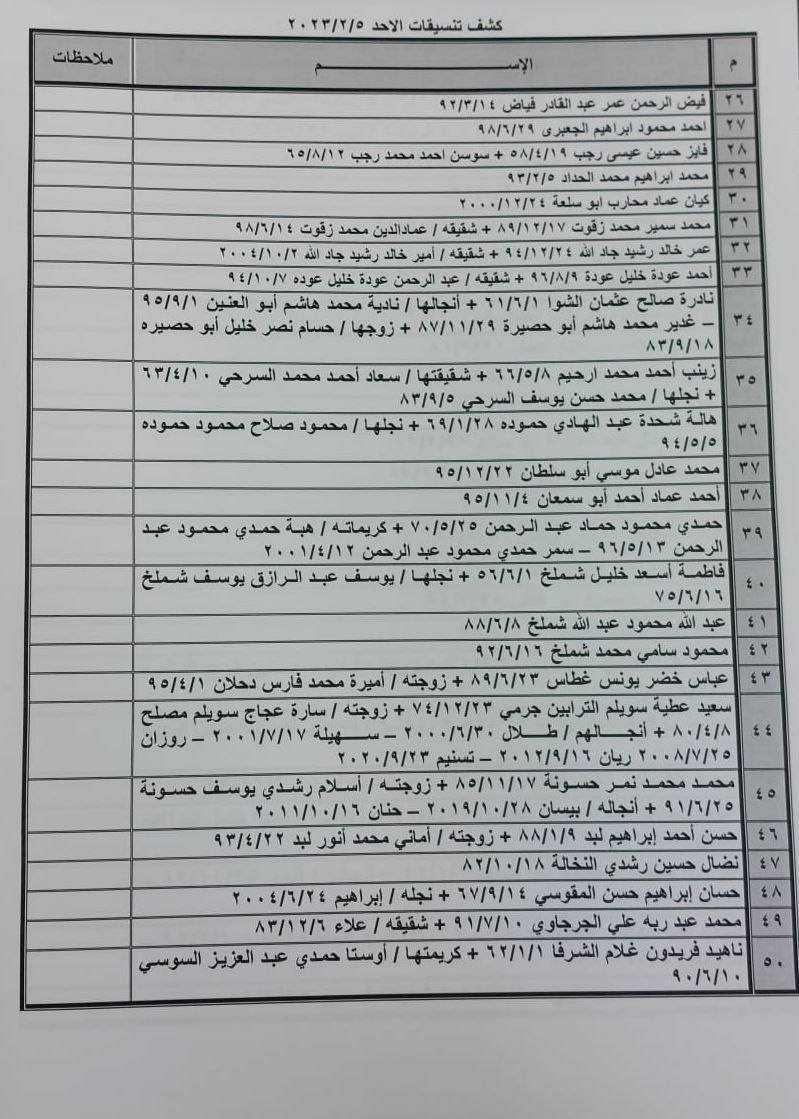 كشف تنسيقات الاحد ٢٠٢٣/٢/٥
م الإســـم ملاحظات
٢٦ فيض الرحمن عمر عبد القادر فياض ٩٢/٣/١٤
٢٧ احمد محمود ابراهيم الجعبرى ٩٨/٦/٢٩
٢٨ فايز حسين عيسى رجب ٥٨/٤/١٩ + سوسن احمد محمد رجب ٦٥/٨/١٢
٢٩ محمد ابراهيم محمد الحداد ٩٣/٢/٥
٣٠ كيان عماد محارب ابو سلعة ٢٠٠٠/١٢/٢٤
٣١ محمد سمير محمد زقوت ٨٩/١٢/١٧ + شقيقه / عمادالدين محمد زقوت ٩٨/٦/١٤
٣٢ عمر خالد رشيد جاد الله ٩٤/١٢/٢٤ + شقيقه / أمير خالد رشيد جاد الله ٢٠٠٤/١٠/٢
٣٣ أحمد عودة خليل عودة ٩٦/٨/٩ + شقيقه / عبد الرحمن عودة خليل عوده ٩٤/١٠/٧
٣٤ نادرة صالح عثمان الشوا ٦١/٦/١ + أنجالها / نادية محمد هاشم أبو العنين ٩٥/٩/١
– غدير محمد هاشم أبو حصيرة ٨٧/١١/٢٩ + زوجها / حسام نصر خليل أبو حصيره
٨٣/٩/١٨
٣٥ زينب أحمد محمد ارحيم ٦٦/٥/٨ + شقيقتها / سعاد أحمد محمد السرحي ٦٣/٤/١٠
+ نجلها / محمد حسن يوسف السرحي ٨٣/٩/٥
٣٦ هالة شحدة عبد الهادي حموده ٦٩/١/٢٨ + نجلها / محمود صلاح محمود حموده
٩٤/٥/٥
٣٧ محمد عادل موسي أبو سلطان ٩٥/١٢/٢٢
٣٨ أحمد عماد أحمد أبو سمعان ٩٥/١١/٤
٣٩ حمدي محمود حماد عبد الرحمن ٧٠/٥/٢٥ + كريماته / هبة حمدي محمود عبد
الرحمن ٩٦/٥/١٣ – سمر حمدي محمود عبد الرحمن ٢٠٠١/٤/١٢
٤٠ فاطمة أسعد خليل شملخ ٥٦/٦/١ + نجلها / يوسف عبد الرازق يوسف شملخ
٧٥/٦/١٦
٤١ عبد الله محمود عبد الله شملخ ٨٨/٦/٨
٤٢ محمود سامي محمد شملخ ٩٢/٦/١٦
٤٣ عباس خضر يونس غطاس ٨٩/٦/٢٣ + زوجته / أميرة محمد فارس دحلان ٩٥/٤/١
٤٤ سعيد عطية سويلم الترابين جرمي ٧٤/١٢/٢٣ + زوجته / سارة عجاج سويلم مصلح
٨٠/٤/٨ + أنجالهم / طلال ٢٠٠٠/٦/٣٠ – سهيلة ٢٠٠١/٧/١٧ – روزان
٢٠٠٨/٧/٢٥ ريان ٢٠١٢/٩/١٦ – تسنيم ٢٠٢٠/٩/٢٣
٤٥ محمد محمد نمر حسونة ٨٥/١١/١٧ + زوجته / أسلام رشدي يوسف حسونة
٩١/٦/٢٥ + أنجاله / بيسان ٢٠١٩/١٠/٢٨ – حنان ٢٠١١/١٠/١٦
٤٦ حسن أحمد إبراهيم لبد ٨٨/١/٩ + زوجته / أماني محمد أنور لبد ٩٣/٤/٢٢
٤٧ نضال حسين رشدي النخالة ٨٢/١٠/١٨
٤٨ حسان إبراهيم حسن المقوسي ٦٧/٩/١٤ + نجله / إبراهيم ٢٠٠٤/٦/٢٤
٤٩ محمد عبد ربه علي الجرجاوي ٩١/٧/١٠ + شقيقه / علاء ٨٣/١٢/٦
٥٠ ناهيد فريدون غلام الشرفا ٦٢/١/١ + كريمتها / أوستا حمدي عبد العزيز السوسي
٩٠/٦/١٠